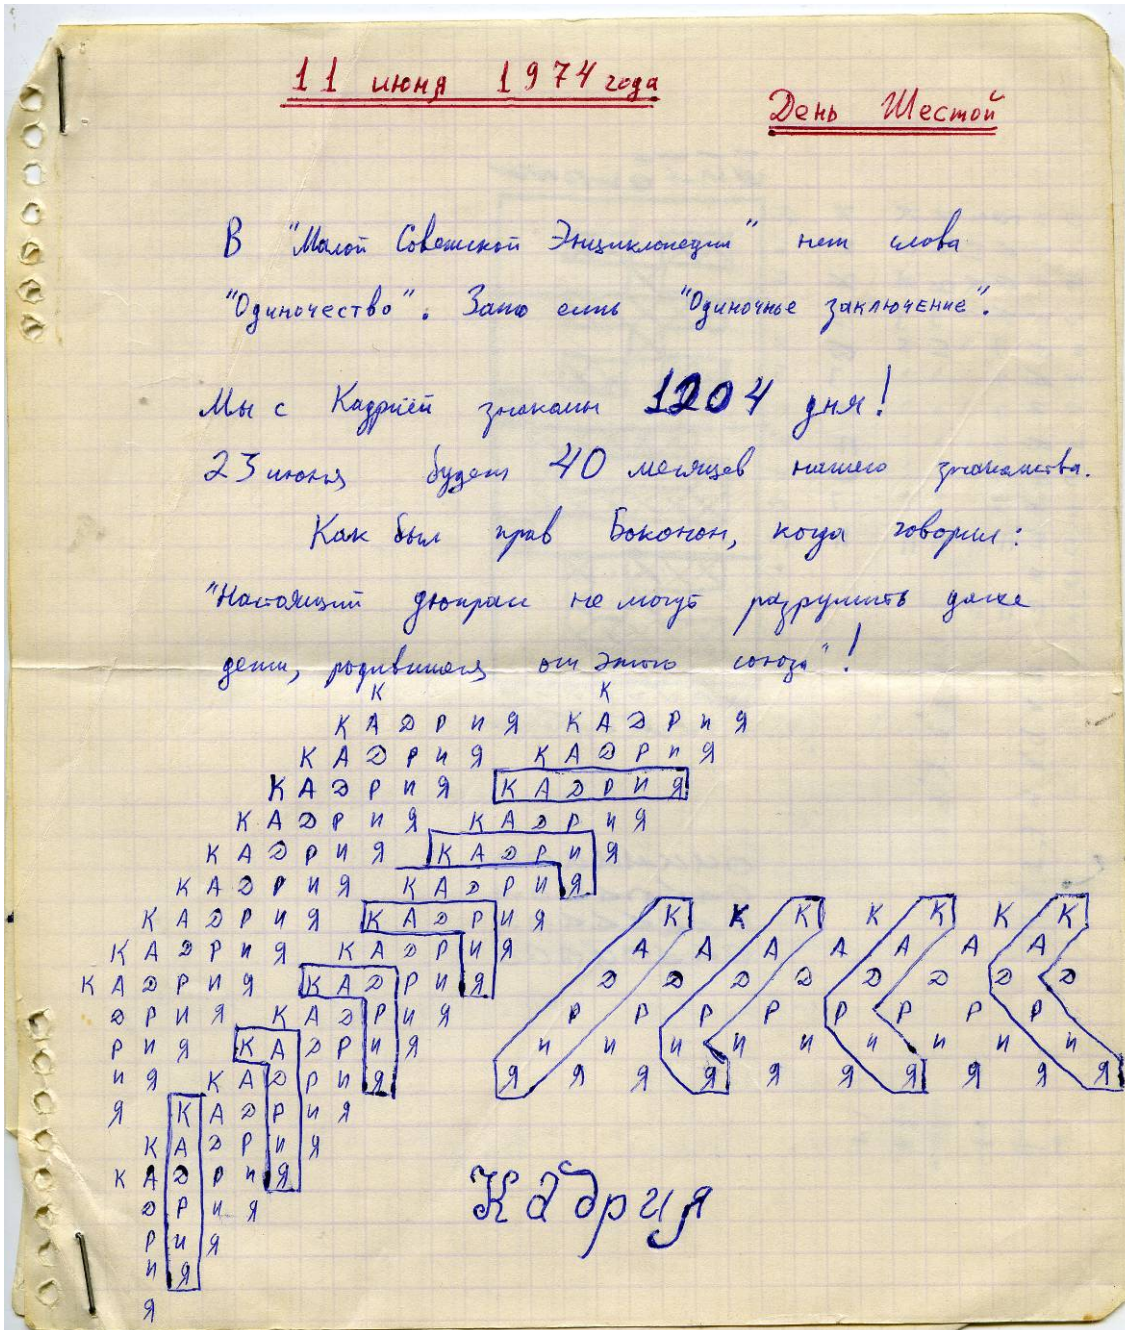 11 июня 1974 года
День Шестой
В "Малой Советской Энциклопедии" нет слова
"Одиночество". Зато есть "Одиночное заключение".
Мы с Кадриёй знакомы 1204 дня!
23 июня будет 40 месяцев нашего знакомства.
Как был прав Боконон, когда говорил:
"Настоящий дюпрасс не могут разрушить даже
дети, родившиеся от этого союза"!
К К
К А Д Р И Я К А Д Р И Я
К А Д Р И Я К А Д Р И Я
К А Д Р И Я К А Д Р И Я
К А Д Р И Я К А Д Р И Я
К А Д Р И Я К А Д Р И Я
К А Д Р И Я К А Д Р И Я
К А Д Р И Я К А Д Р И Я
К А Д Р И Я К А Д Р И Я
К А Д Р И Я К А Д Р И Я
Д Р И Я К А Д Р И Я
Р И Я К А Д Р И Я
И Я К А Д Р И Я
Я К А Д Р И Я
К А Д Р И Я
К А Д Р И Я
Д Р И Я
Р И Я
И Я
Я
К К К К К К К
А А А А А А А
Д Д Д Д Д Д Д Д
Р Р Р Р Р Р Р Р
И И И И И И И И И
Я Я Я Я Я Я Я Я Я Я
Кадрия